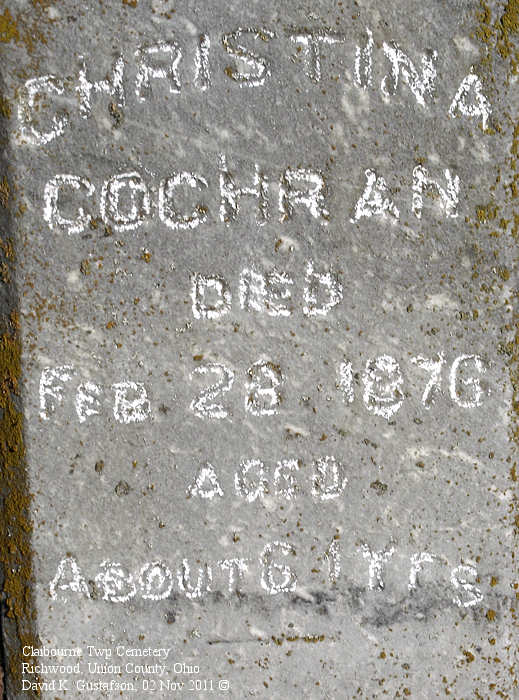 CHRISTINA
COCHRAN
DIED
FEB 28 1876
AGED
ABOUT 61 Yrs
Claibourne Twp Cemetery
Richwood, Union County, Ohio
David K. Gustafson, 02 Nov 2011 ©